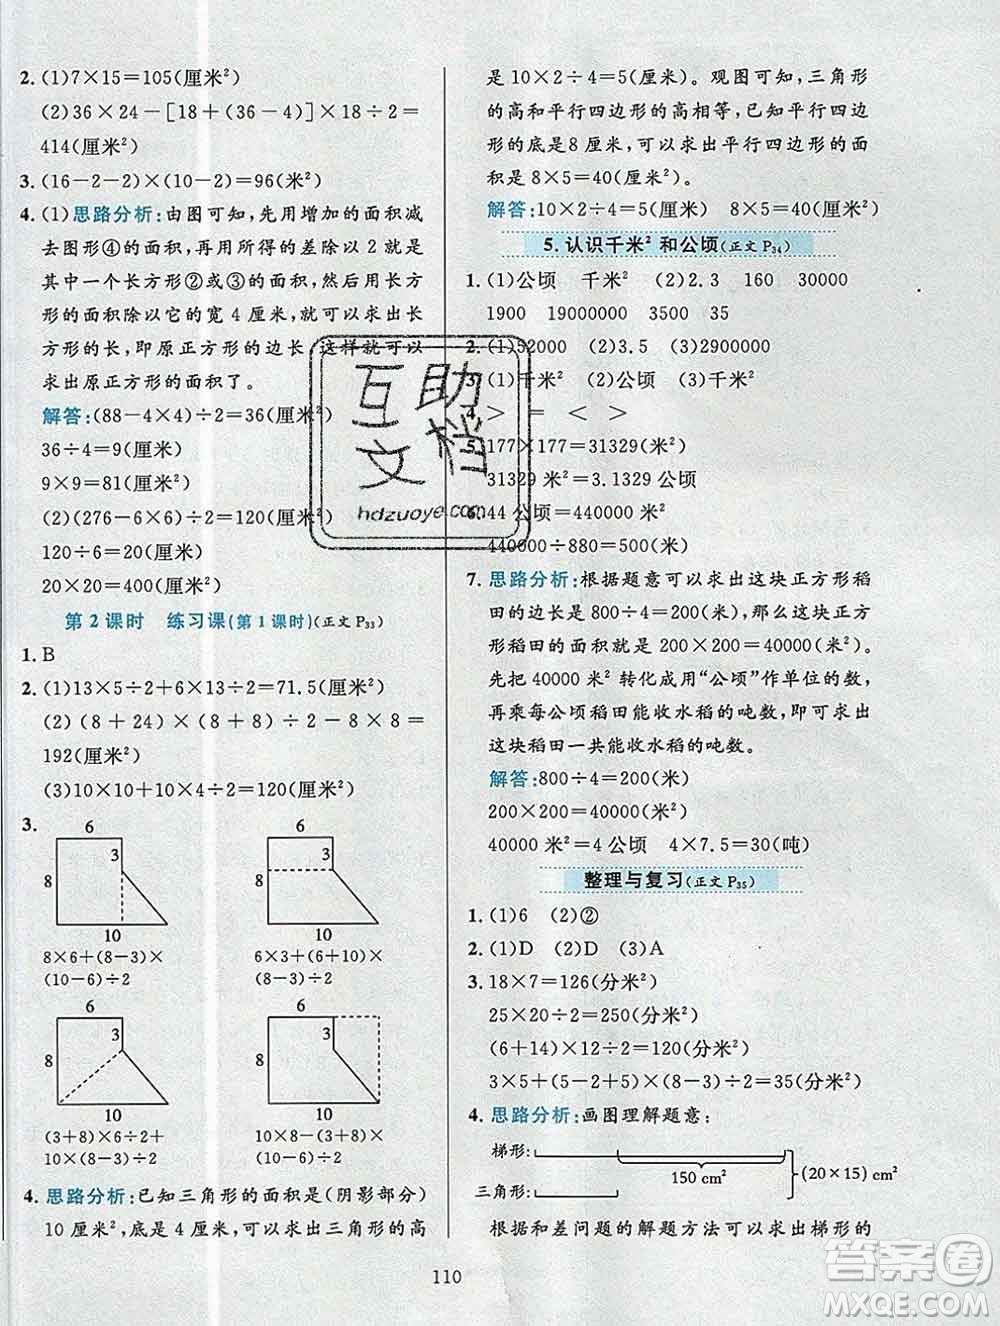 2. (1)7×15=105(厘米²)
(2)36×24-[18+(36-4)]×18÷2=
414(厘米²)
3. (16-2-2)×(10-2)=96(米²)
4. (1)思路分析:由图可知,先用增加的面积减
去图形④的面积,再用所得的差除以2就是
其中一个长方形②或③的面积,然后用长方
形的面积除以它的宽4厘米,就可以求出长
方形的长,即原正方形的边长,这样就可以
求出原正方形的面积了。
解答:(88-4×4)÷2=36(厘米²)
36÷4=9(厘米)
9×9=81(厘米²)
(2)(276-6×6)÷2=120(厘米²)
120÷6=20(厘米)
20×20=400(厘米²)
第2课时 练习课(第1课时)(正文P₃₃)
1. B
2. (1)13×5÷2+6×13÷2=71.5(厘米²)
(2)(8+24)×(8+8)÷2-8×8=
192(厘米²)
(3)10×10+10×4÷2=120(厘米²)
3.
6
3
8
10
8×6+(8-3)×
(10-6)÷2
6
3
8
10
6×3+(6+10)×
(8-3)÷2
6
3
8
10
(3+8)×6÷2+
10×(8-3)÷2
6
3
8
10
10×8-(3+8)×
(10-6)÷2
4. 思路分析:已知三角形的面积是(阴影部分)
10厘米²,底是4厘米,可以求出三角形的高
是10×2÷4=5(厘米)。观图可知,三角形
的高和平行四边形的高相等,已知平行四边
形的底是8厘米,可以求出平行四边形的面
积是8×5=40(厘米²)。
解答:10×2÷4=5(厘米) 8×5=40(厘米²)
5. 认识千米²和公顷(正文P₃₄)
1. (1)公顷 千米² (2)2.3 160 30000
1900 19000000 3500 35
2. (1)52000 (2)3.5 (3)2900000
3. (1)千米² (2)公顷 (3)千米²
4. > = < >
5. 177×177=31329(米²)
31329米²=3.1329公顷
6. 44公顷=440000米²
440000÷880=500(米)
7. 思路分析:根据题意可以求出这块正方形稻
田的边长是800÷4=200(米),那么这块正方
形稻田的面积就是200×200=40000(米²)。
先把40000米²转化成用“公顷”作单位的数,
再乘每公顷稻田能收水稻的吨数,即可求出
这块稻田一共能收水稻的吨数。
解答:800÷4=200(米)
200×200=40000(米²)
40000米²=4公顷 4×7.5=30(吨)
整理与复习(正文P₃₅)
1. (1)6 (2)②
2. (1)D (2)D (3)A
3. 18×7=126(分米²)
25×20÷2=250(分米²)
(6+14)×12÷2=120(分米²)
3×5+(5+3)×5÷2=35(分米²)
4. 思路分析:画图理解题意:
梯形:
150 cm²
三角形:
(20×15) cm²
根据和差问题的解题方法可以求出梯形的
110
互助
文档
hdzuoye.com
答案圈
MXQE.COM